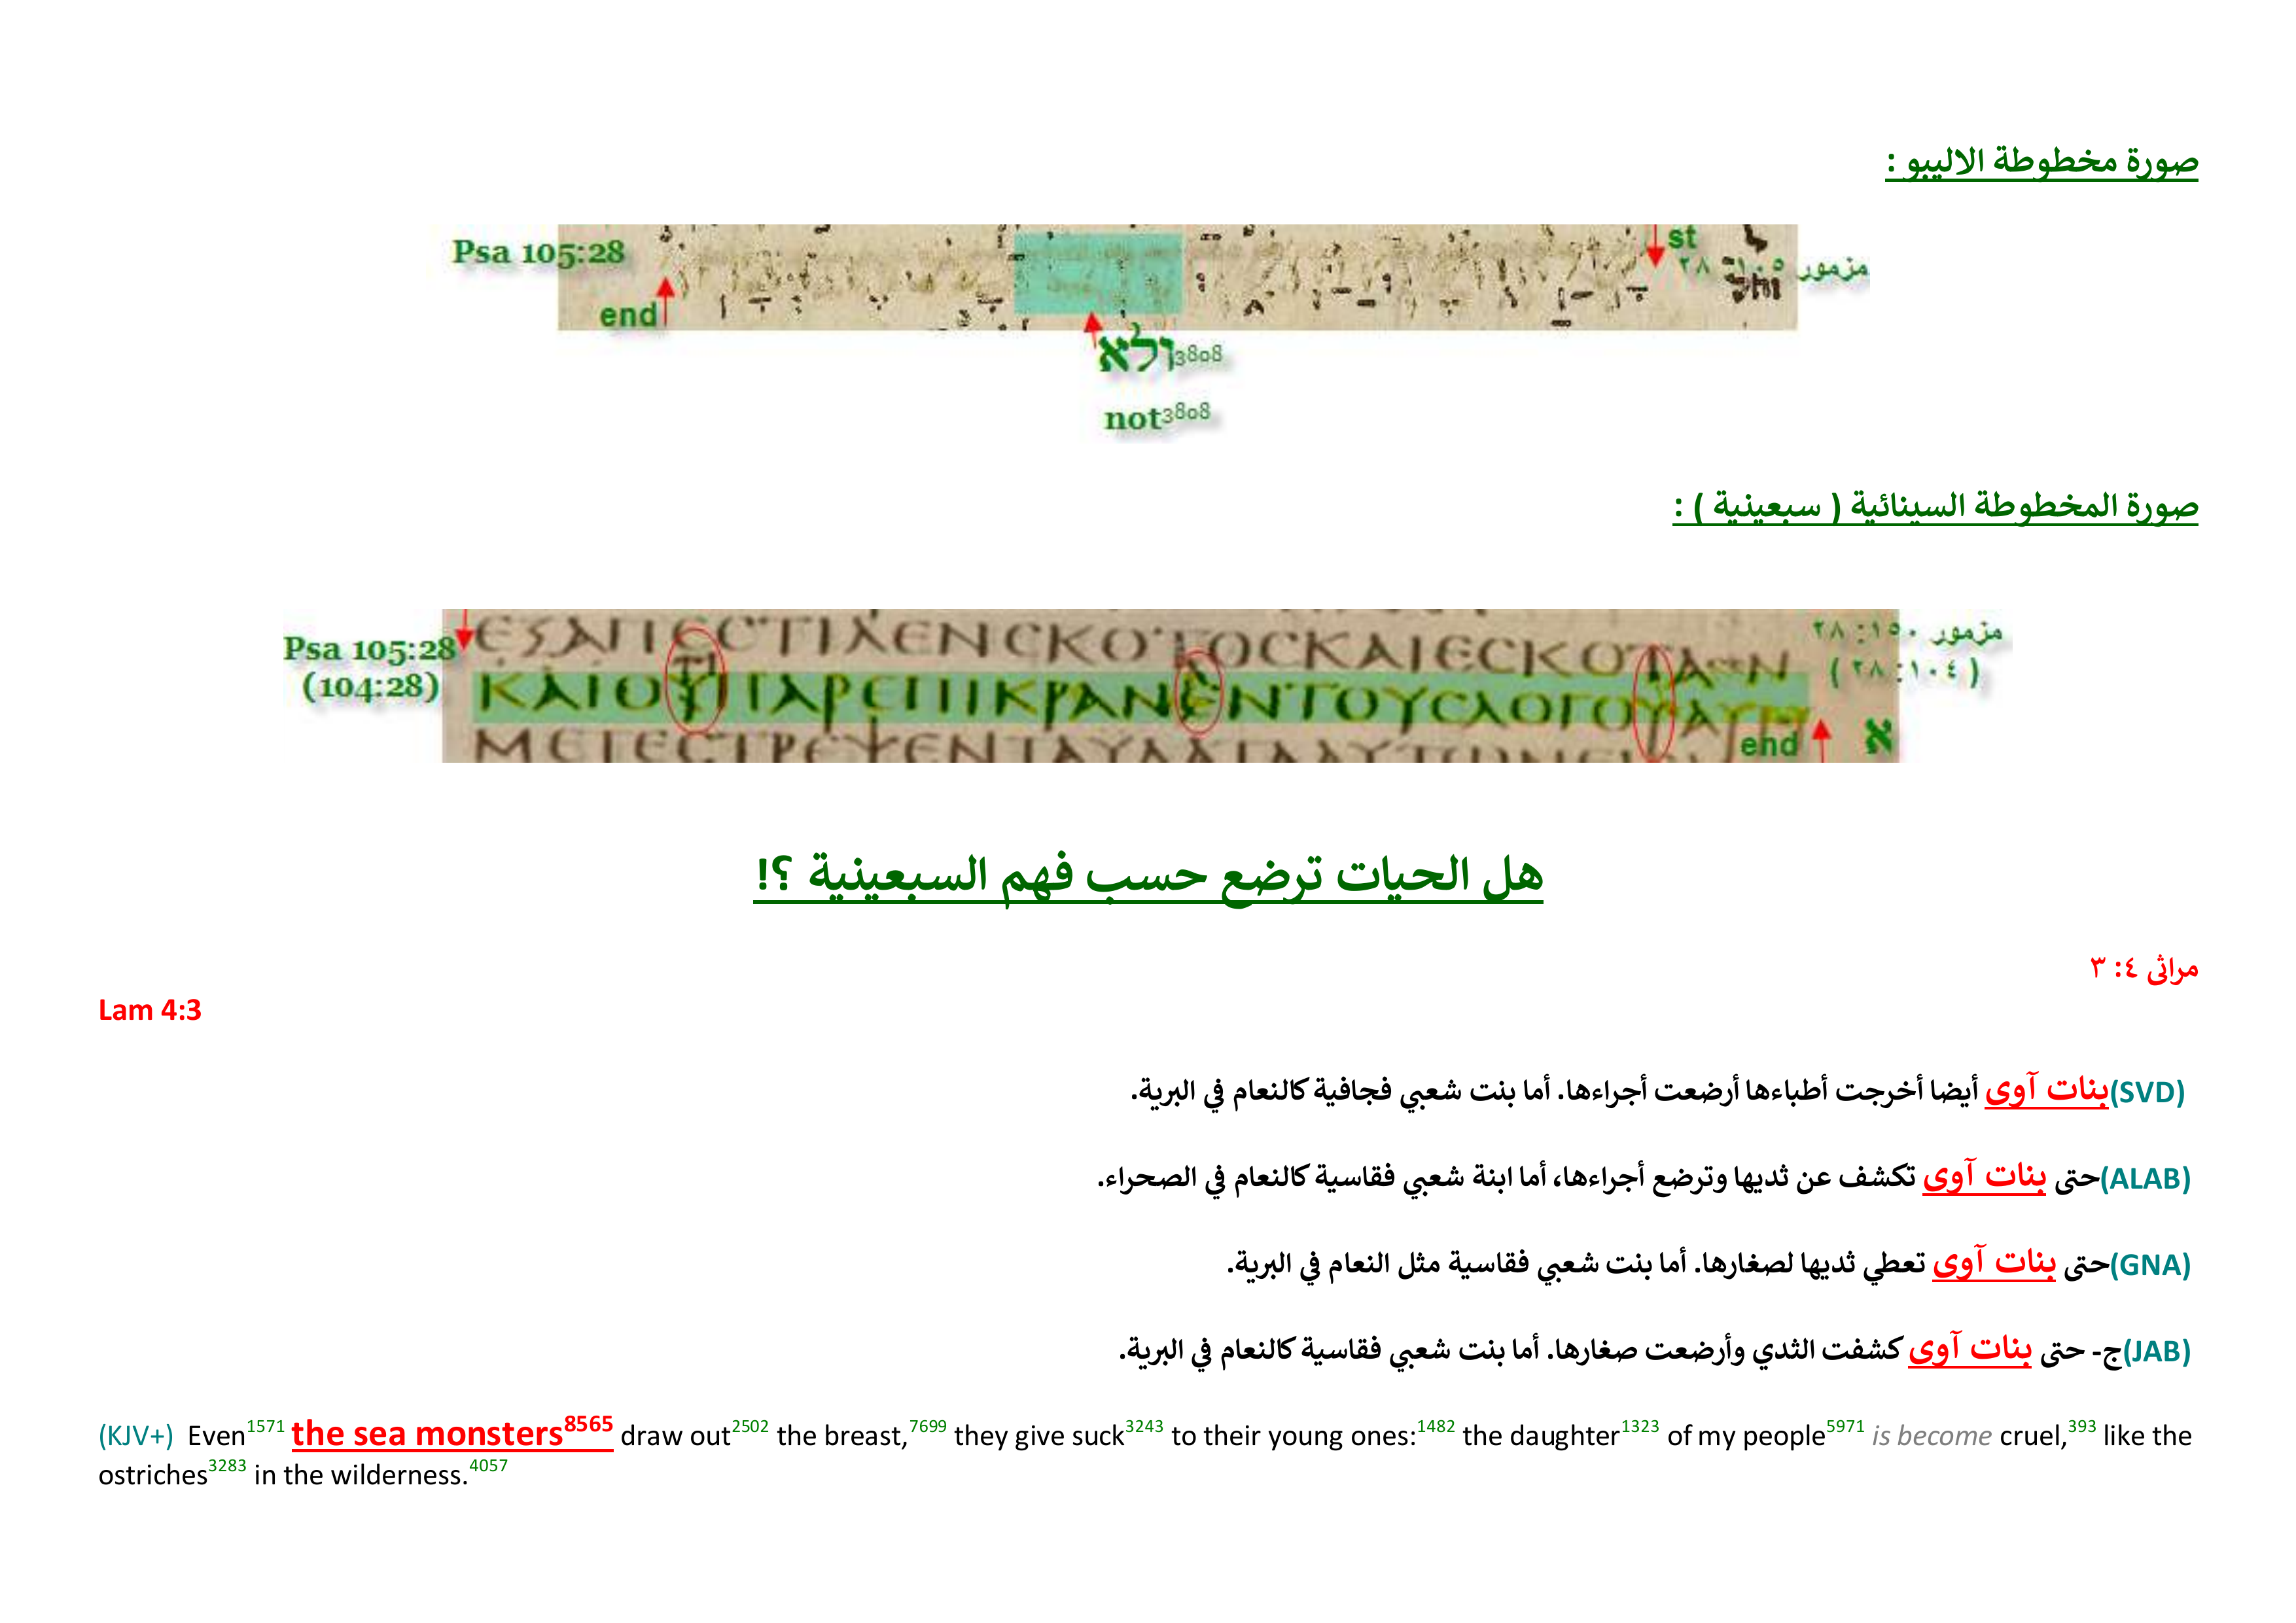 صورة مخطوطة الاليبو :
Psa 105:28
st
مزمور ١٠٥: ٢٨
end
ולֹא3808
not3808
صورة المخطوطة السينائية ( سبعينية ) :
Psa 105:28
(104:28)
مزمور ١٥٠: ٢٨
(١٠٤: ٢٨)
ΚΑΙΟΥΠΑΡΕΠΙΚΡΑΝΕΝΤΟΥϹΛΟΓΟΥϹΑΥ
end
א
هل الحيات ترضع حسب فهم السبعينية ؟!
مراثى ٤: ٣
Lam 4:3
(SVD)بنات آوى أيضا أخرجت أطباءها أرضعت أجراءها. أما بنت شعبي فجافية كالنعام في البرية.
(ALAB)حتى بنات آوى تكشف عن ثديها وترضع أجراءها، أما ابنة شعبي فقاسية كالنعام في الصحراء.
(GNA)حتى بنات آوى تعطي ثديها لصغارها. أما بنت شعبي فقاسية مثل النعام في البرية.
(JAB)ج- حتى بنات آوى كشفت الثدي وأرضعت صغارها. أما بنت شعبي فقاسية كالنعام في البرية.
(KJV+) Even1571 the sea monsters8565 draw out2502 the breast,7699 they give suck3243 to their young ones:1482 the daughter1323 of my people5971 is become cruel,393 like the
ostriches3283 in the wilderness.4057